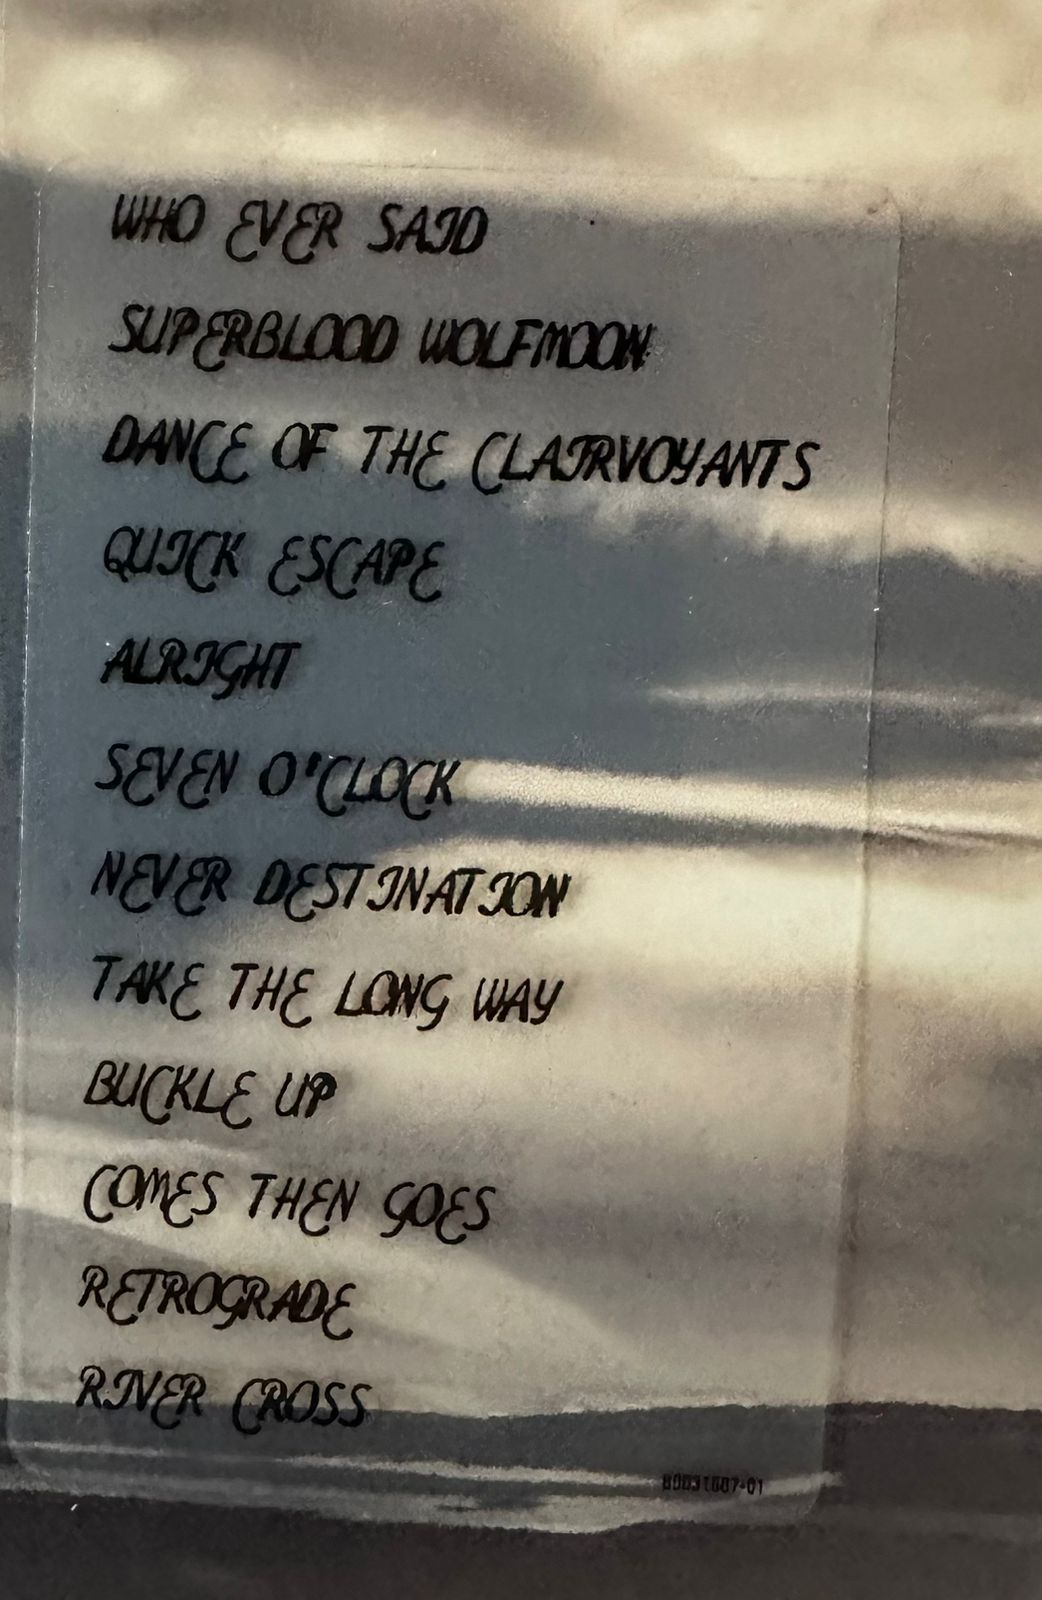 WHO EVER SAID
SUPERBLOOD WOLFMOON
DANCE OF THE CLAIRVOYANTS
QUICK ESCAPE
ALRIGHT
SEVEN O'CLOCK
NEVER DESTINATION
TAKE THE LONG WAY
BUCKLE UP
COMES THEN GOES
RETROGRADE
RIVER CROSS